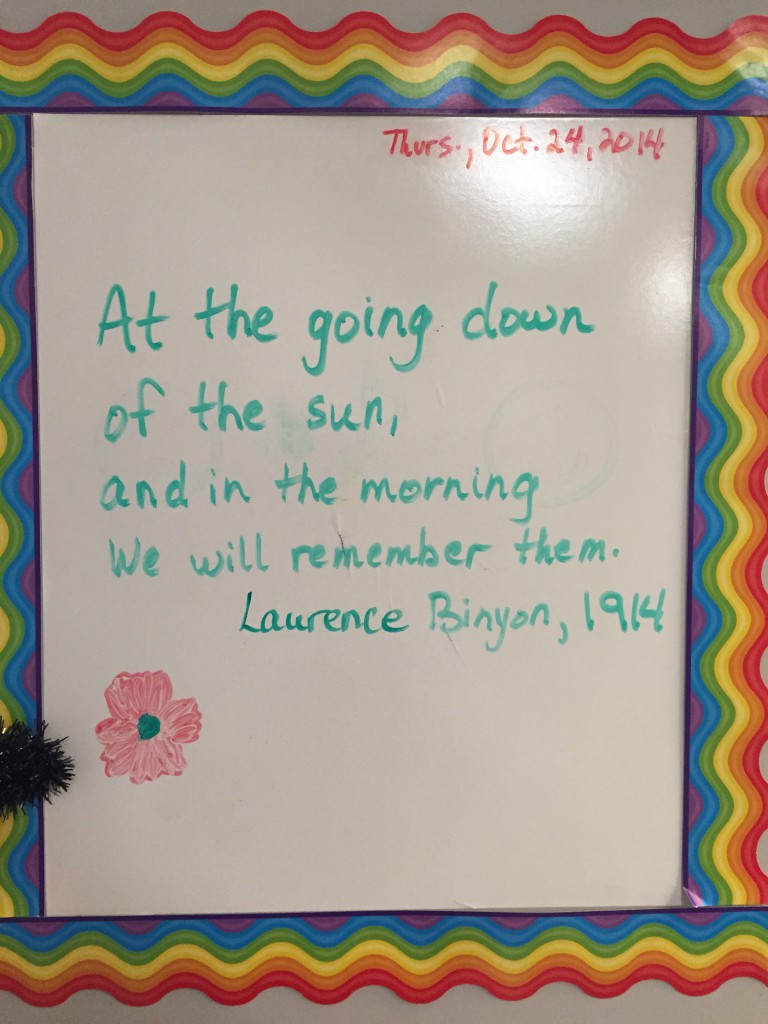 Thurs., Oct. 24, 2014
At the going down
of the sun,
and in the morning
We will remember them.
Laurence Binyon, 1914